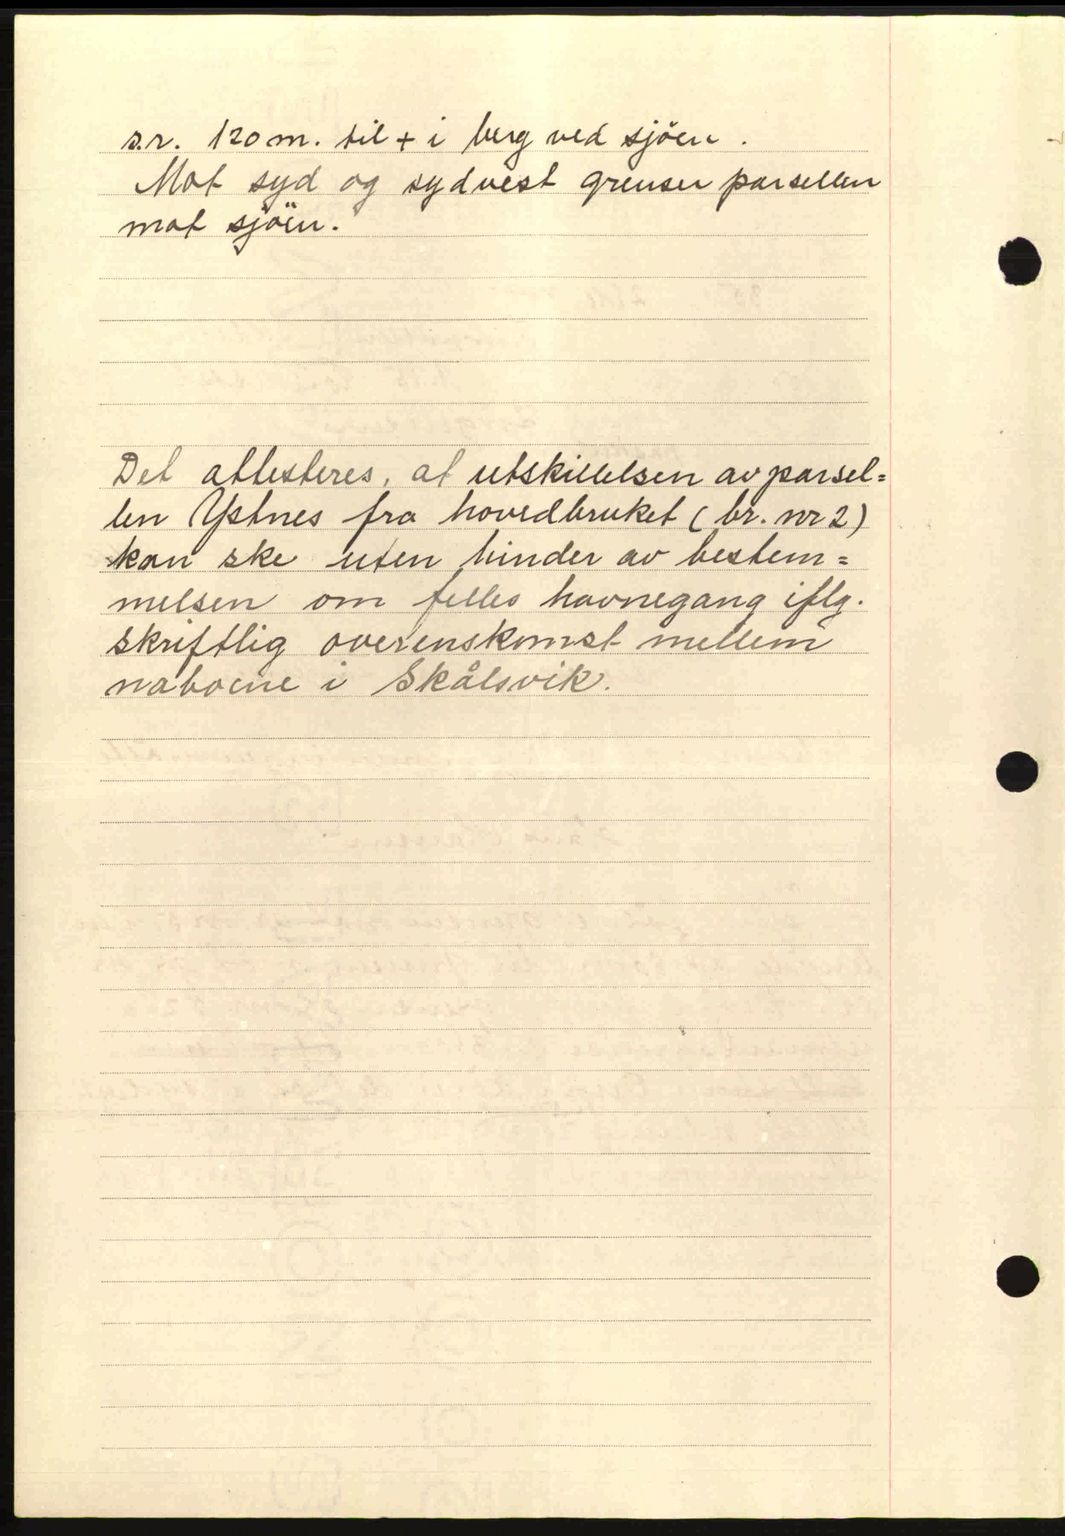 s.r. 120 m. til + i berg ved sjöen.
Mot syd og sydvest grenser parsellen
mot sjöen.
Det attesteres, at utskillelsen av parsel=
len Ystnes fra hovedbruket (br. nr 2)
kan ske uten hinder av bestem=
melsen om felles havnegang iflg.
skriftlig overenskomst mellem
naboene i Skålsvik.